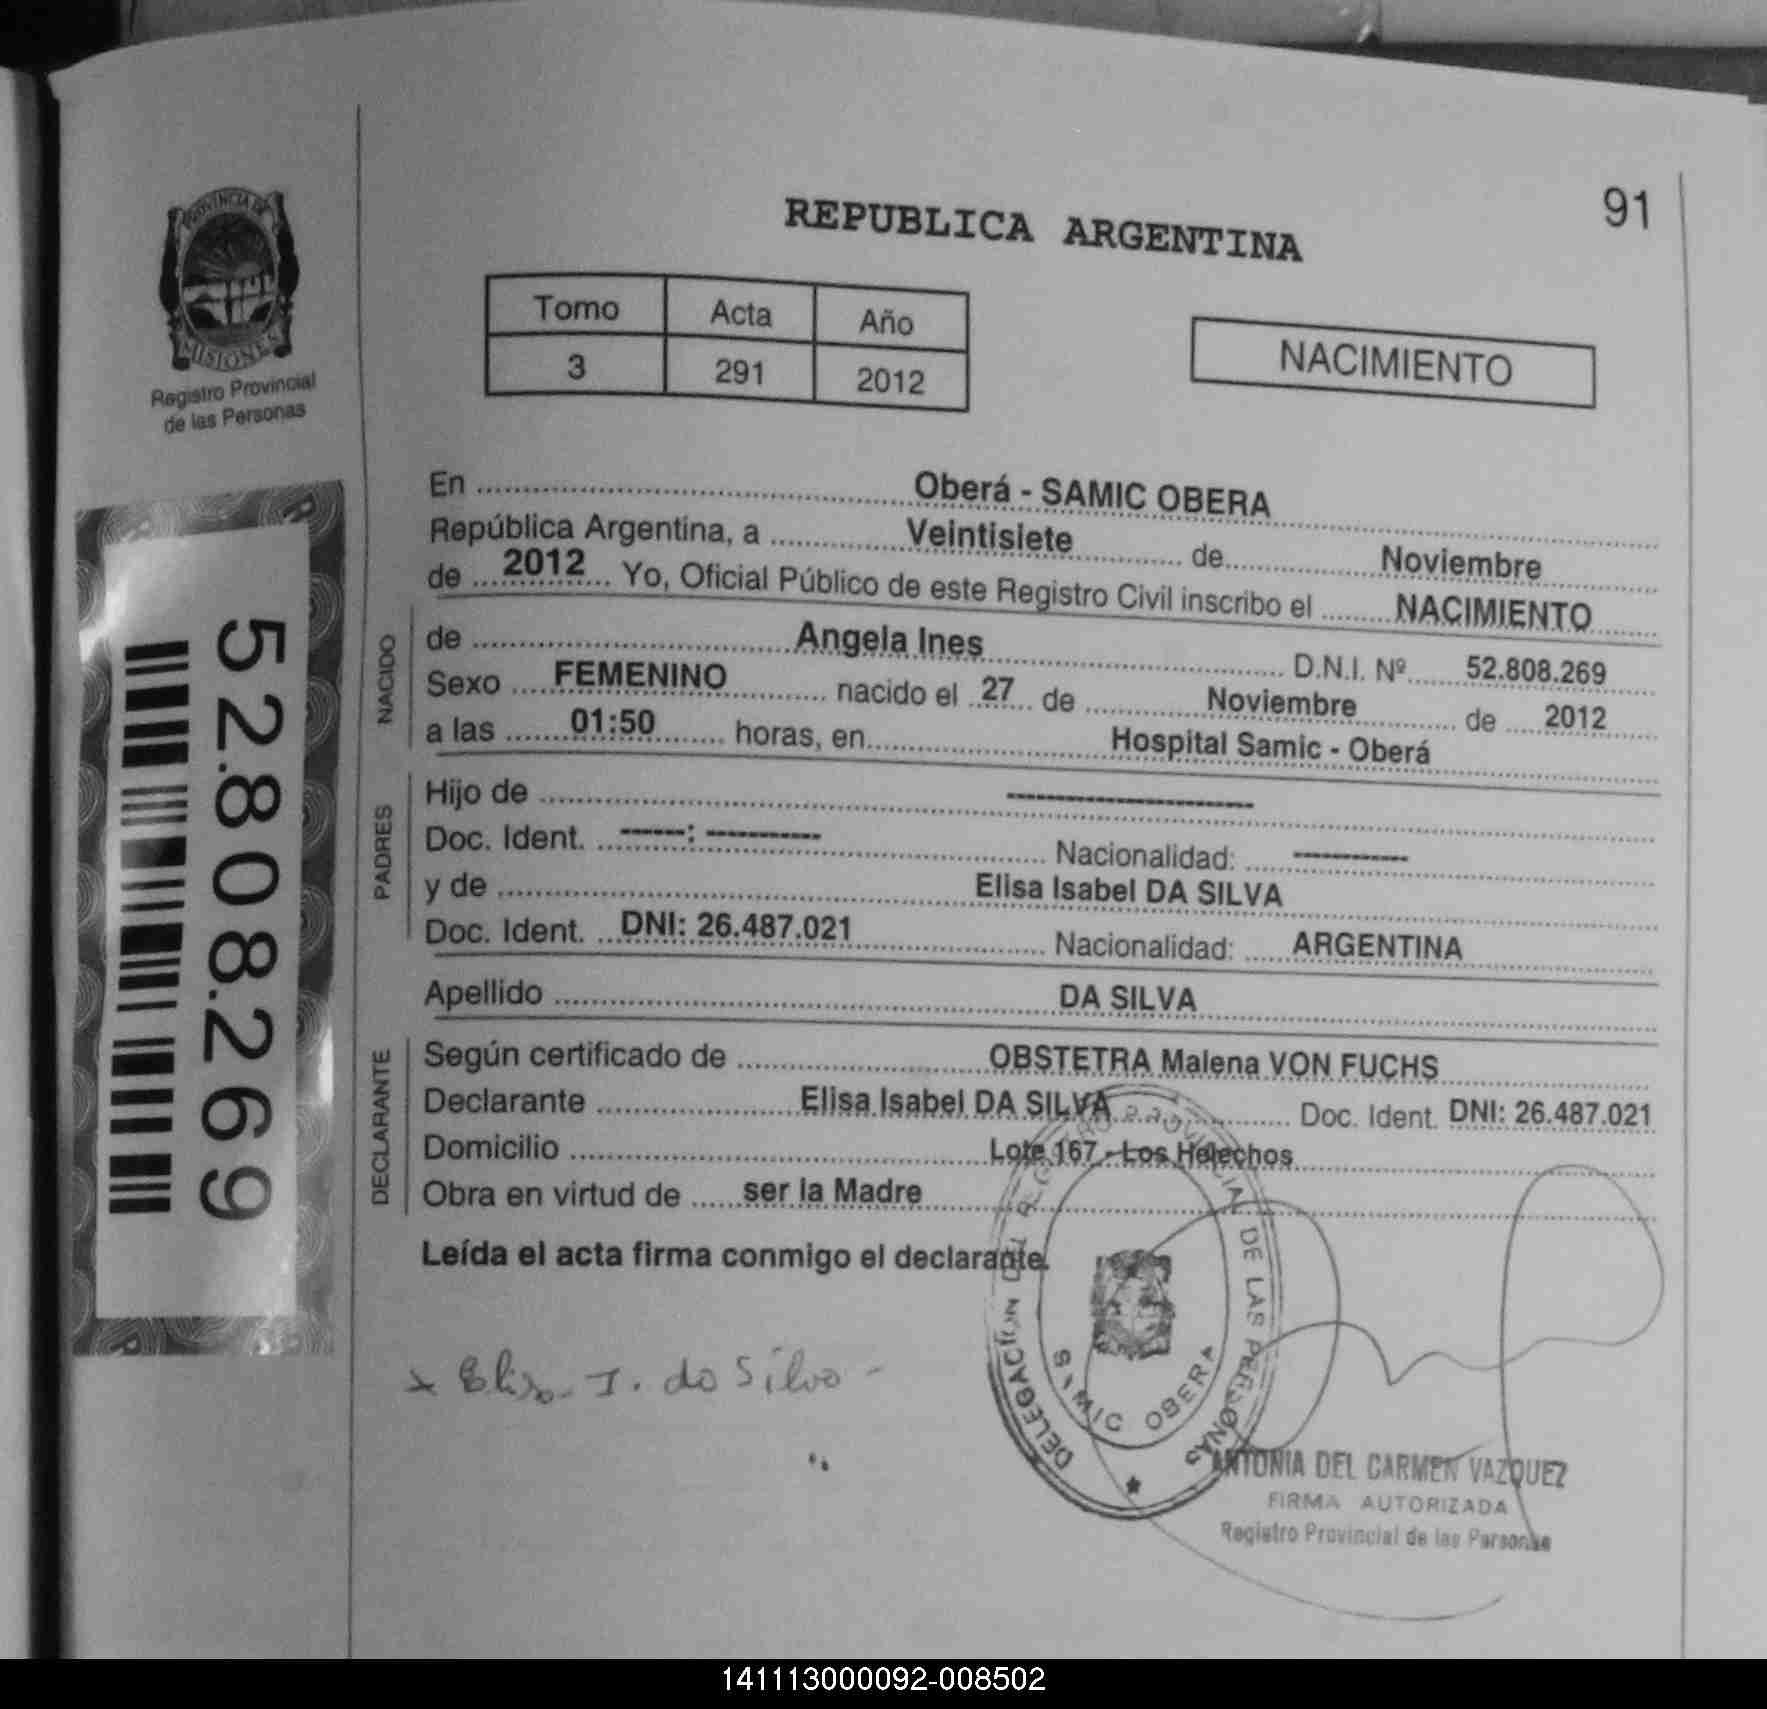 PROVINCIA DE
MISIONES
Registro Provincial
de las Personas
REPUBLICA ARGENTINA
91
Tomo Acta Año
3 291 2012
NACIMIENTO
52.808.269
En Oberá - SAMIC OBERA
República Argentina, a Veintisiete de Noviembre
de 2012 Yo, Oficial Público de este Registro Civil inscribo el NACIMIENTO
NACIDO
de Angela Ines D.N.I. Nº 52.808.269
Sexo FEMENINO nacido el 27 de Noviembre de 2012
a las 01:50 horas, en Hospital Samic - Oberá
PADRES
Hijo de --------------------
Doc. Ident. ------: ---------- Nacionalidad: ----------
y de Elisa Isabel DA SILVA
Doc. Ident. DNI: 26.487.021 Nacionalidad: ARGENTINA
Apellido DA SILVA
DECLARANTE
Según certificado de OBSTETRA Malena VON FUCHS
Declarante Elisa Isabel DA SILVA Doc. Ident. DNI: 26.487.021
Domicilio Lote 167 - Los Helechos
Obra en virtud de ser la Madre
Leída el acta firma conmigo el declarante.
x Elisa I. da Silva -
DELEGACION DEL REGISTRO PROVINCIAL DE LAS PERSONAS
SAMIC OBERA
ANTONIA DEL CARMEN VAZQUEZ
FIRMA AUTORIZADA
Registro Provincial de las Personas
141113000092-008502